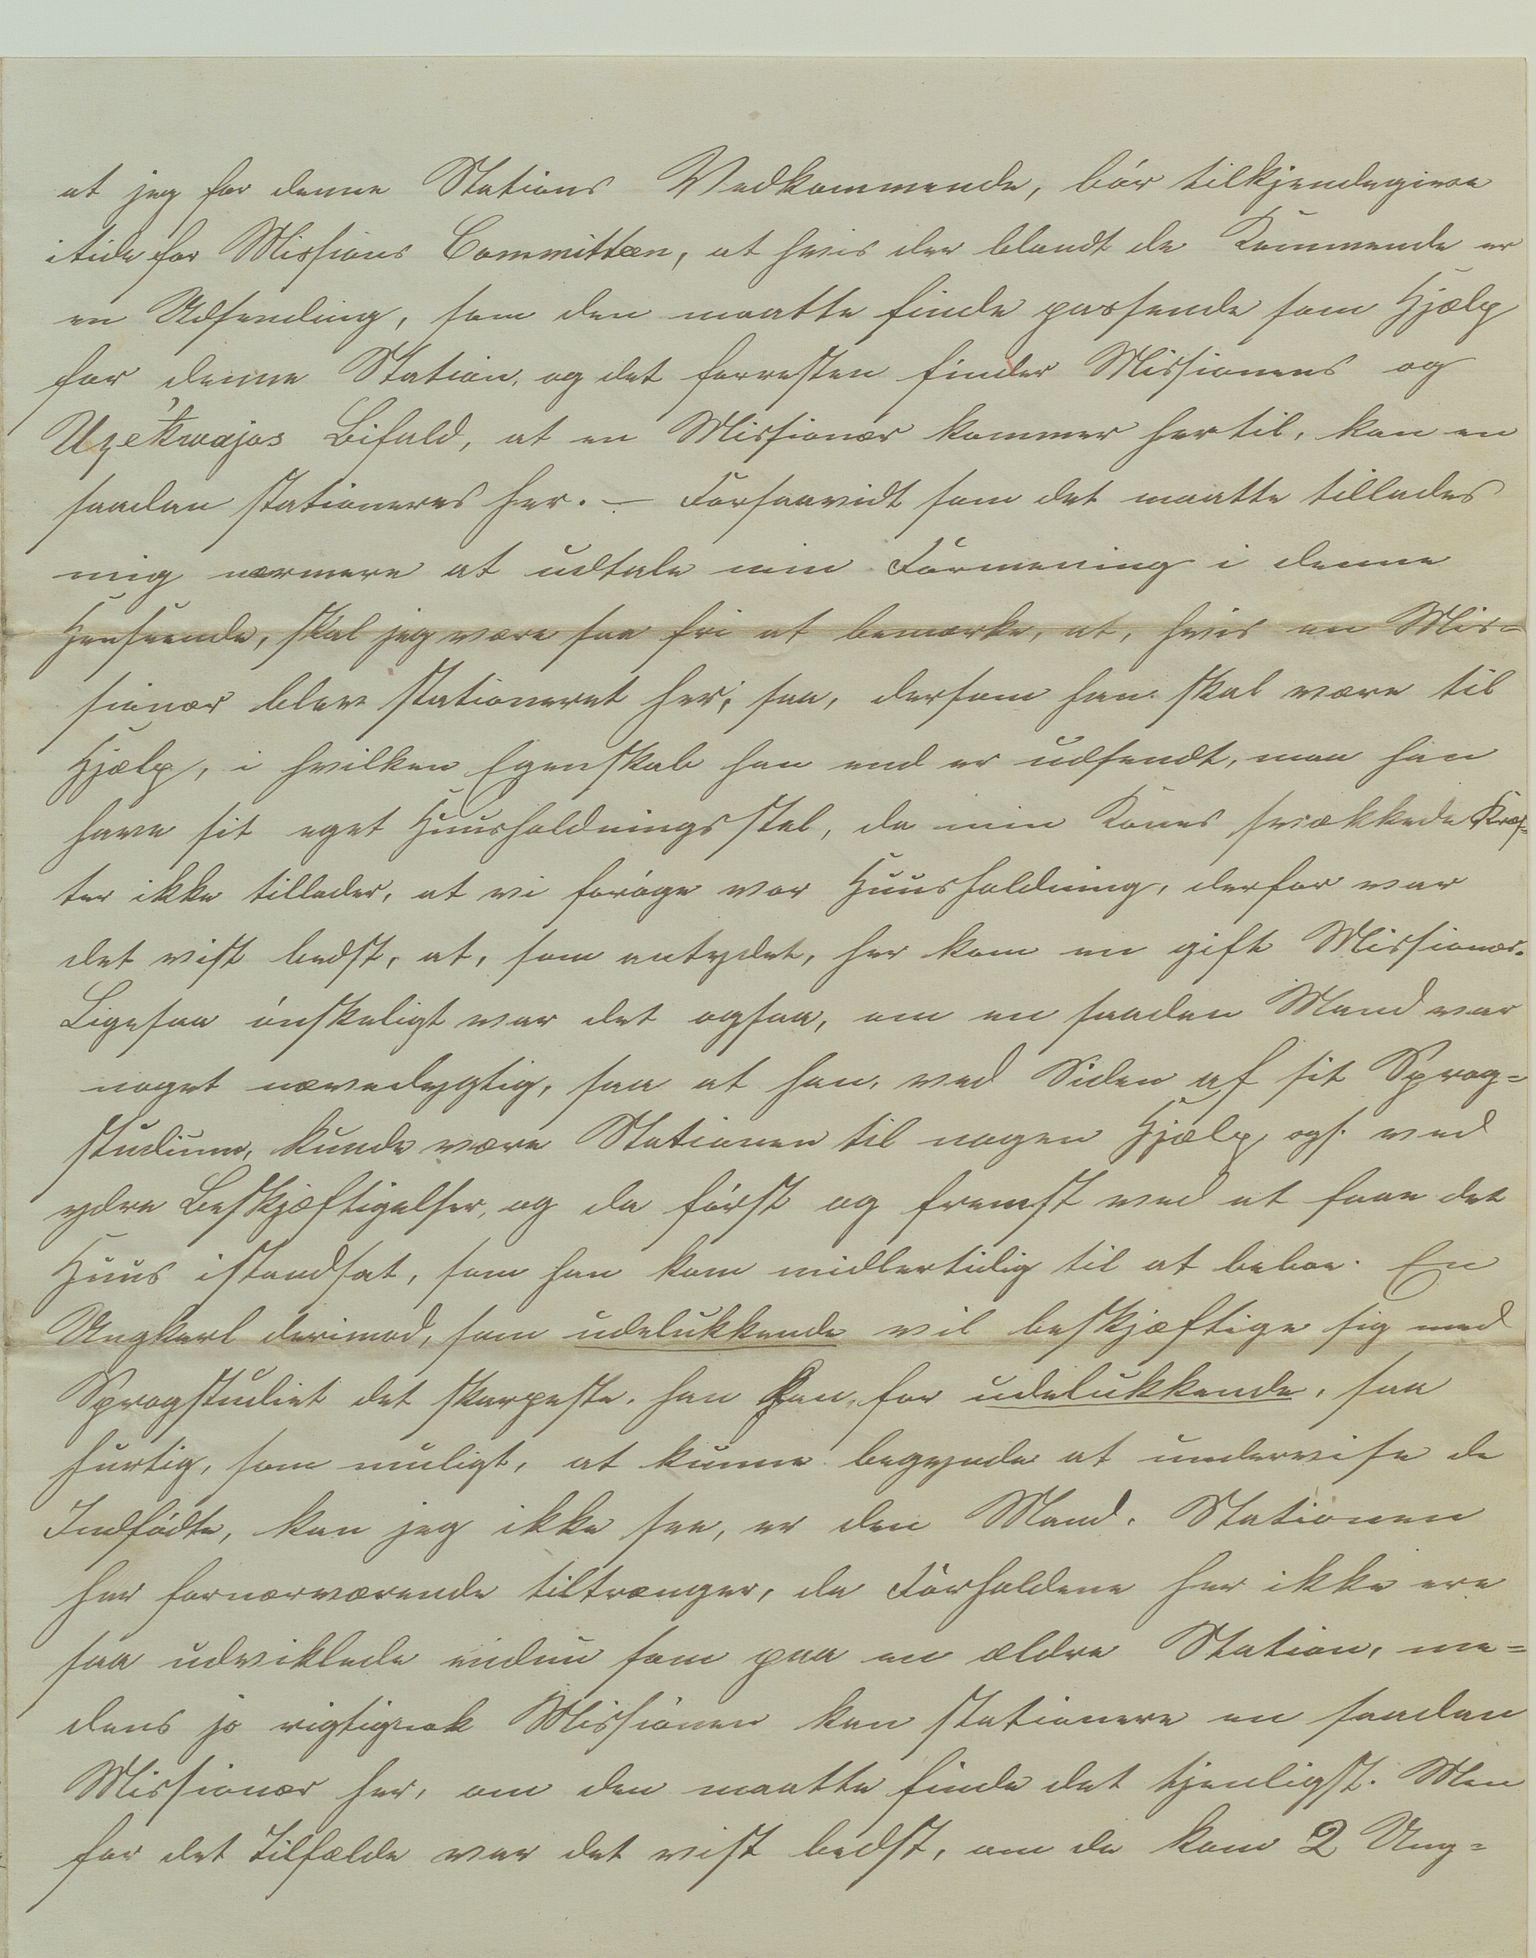 at jeg for denne Stations Vedkommende, bör tilkjendegive
itide for Missions Committeen, at hvis der blandt de Kommende er
en Udsending, som den maatte finde passende som Hjælp
for denne Station, og det forresten finder Missionens og
Uzekwajos Bifald, at en Missionær kommer hertil, kan en
saadan stationeres her. – Forsaavidt som det maatte tillades
mig nærmere at udtale min Formening i denne
Henseende, skal jeg være saa fri at bemærke, at, hvis en Mis=
sionær blev stationeret her, saa, dersom han skal være til
Hjælp, i hvilken Egenskab han end er udsendt, maa han
have sit eget Huusholdningsstel, da min Kones svækkede Kræf=
ter ikke tillader, at vi foröge vor Huusholdning, derfor var
det vist bedst, at, som antydet, her kom en gift Missionær.
Ligesaa önskeligt var det ogsaa, om en saadan Mand var
noget nævedygtig, saa at han, ved Siden af sit Sprog=
studium, kunde være Stationen til nogen Hjælp ogs. ved
ydre Beskjæftigelser, og da först og fremst ved at faae det
Huus istandsat, som han kom midlertidig til at beboe. En
Ungkarl derimod, som udelukkende vil beskjæftige sig med
Sprogstudiet det skarpeste han kan, for udelukkende, saa
hurtig, som muligt, at kunne begynde at undervise de
Indfödte, kan jeg ikke see, er den Mand, Stationen
her fornærværende tiltrænger, da Forholdene her ikke ere
saa udviklede endnu som paa en ældre Station, me=
dens jo rigtignok Missionen kan stationere en saadan
Missionær her, om den maatte finde det tjenligst. Men
for det Tilfælde var det vist bedst, om da kom 2 Ung=